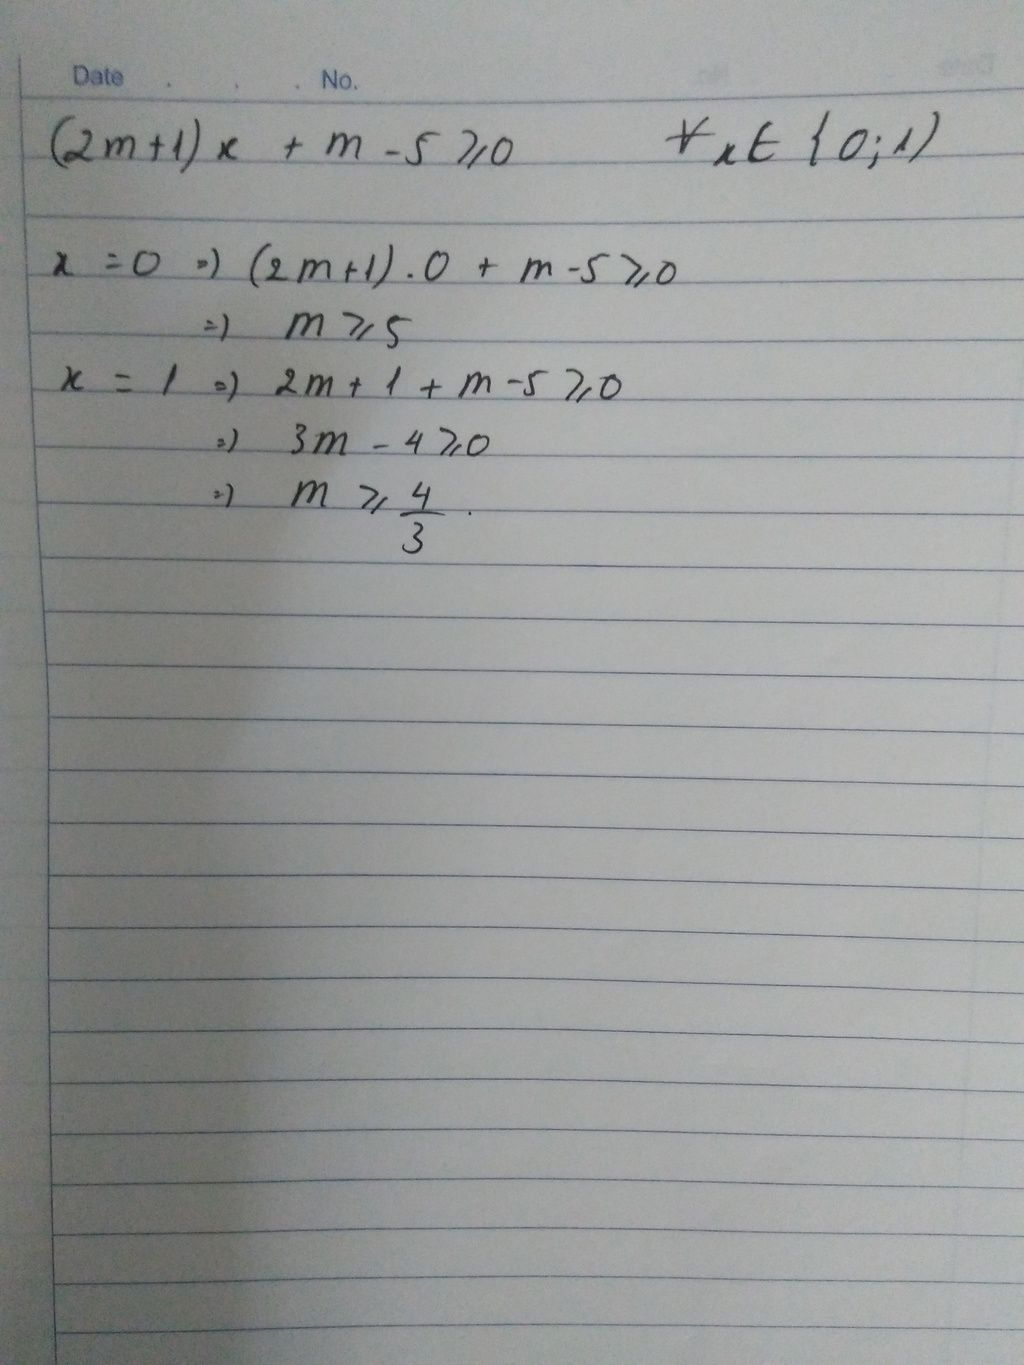 Date . . . No.
(2m+1)x + m - 5 ⩾ 0 ∀x∈ {0;1)
x = 0 => (2m+1).0 + m - 5 ⩾ 0
=> m ⩾ 5
x = 1 => 2m + 1 + m - 5 ⩾ 0
=> 3m - 4 ⩾ 0
=> m ⩾ 4/3 .